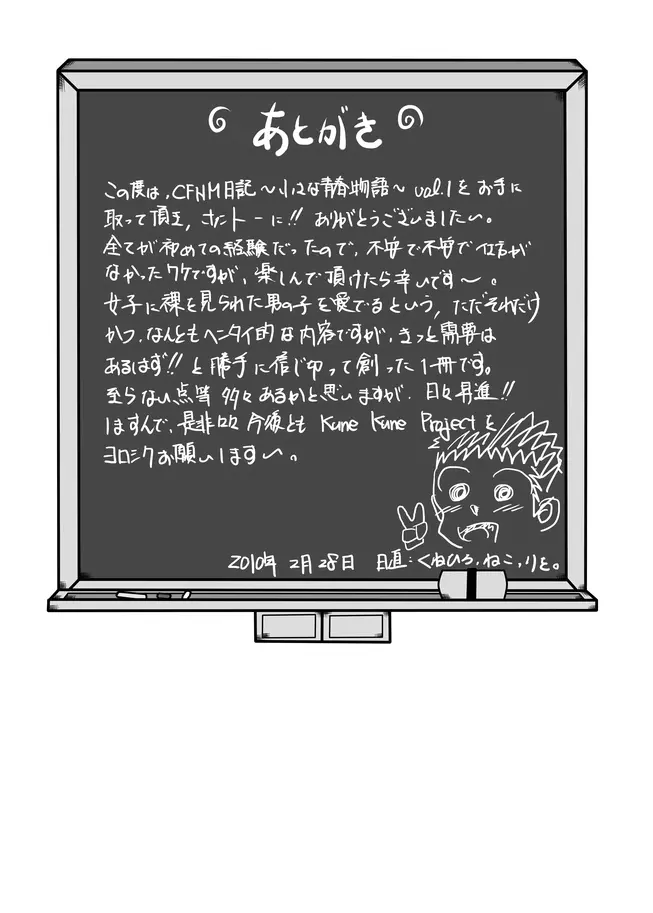 あとがき
この度は、CFNM日記〜小さな青春物語〜 val.1を お手に
取って頂き, まことーに!! ありがとうございました〜。
全てが初めての経験だったので、不安で不安で仕方が
なかったワケですが、楽しんで頂けたら幸いです〜。
女子に裸を見られた男の子を愛でるという, ただそれだけ
かつ、なんともヘンタイ的な内容ですが、きっと需要は
あるはず!! と勝手に信じ切って創った1冊です。
至らない点等 多々あるかと思いますが、日々昇進!!
しますんで、是非々々 今後とも Kune Kune Projectを
ヨロシクお願いします〜。
2010年 2月28日 日直:くねひろ,ねこ,りと。